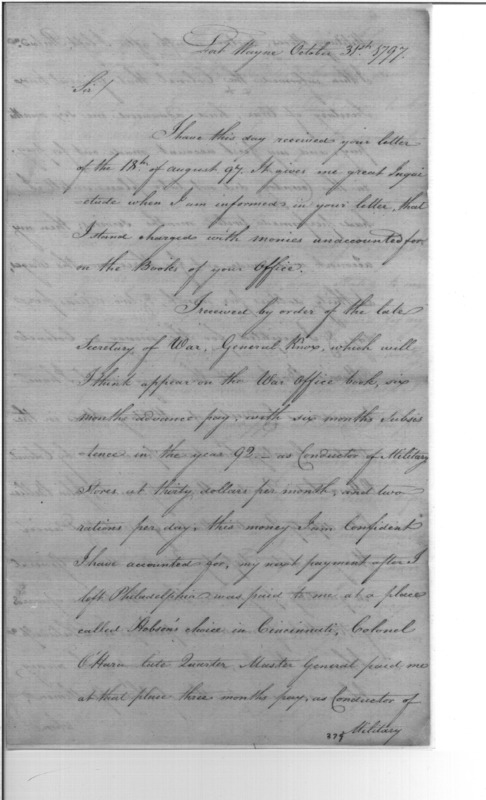 Fort Wayne October 31st 1797.
Sir/
I have this day received your letter
of the 18th of august 97. It gives me great Inqui
etude when I am informed in your letter, that
I stand charged with monies unaccounted for,
on the Books of your Office.
I received by order of the late
Secretary of War, General Knox, which will
I think appear on the War Office book, six
months advance pay, with six months Subsis
tence in the year 92 – as Conductor of Military
Stores at thirty dollars per month, and two
rations per day, this money I am Confident
I have accounted for, my next payment after I
left Philadelphia was paid to me at a place
called Hobson's choice in Cincinnati, Colonel
O'Hara late Quarter Master General paid me
at that place three months pay, as Conductor of
Military